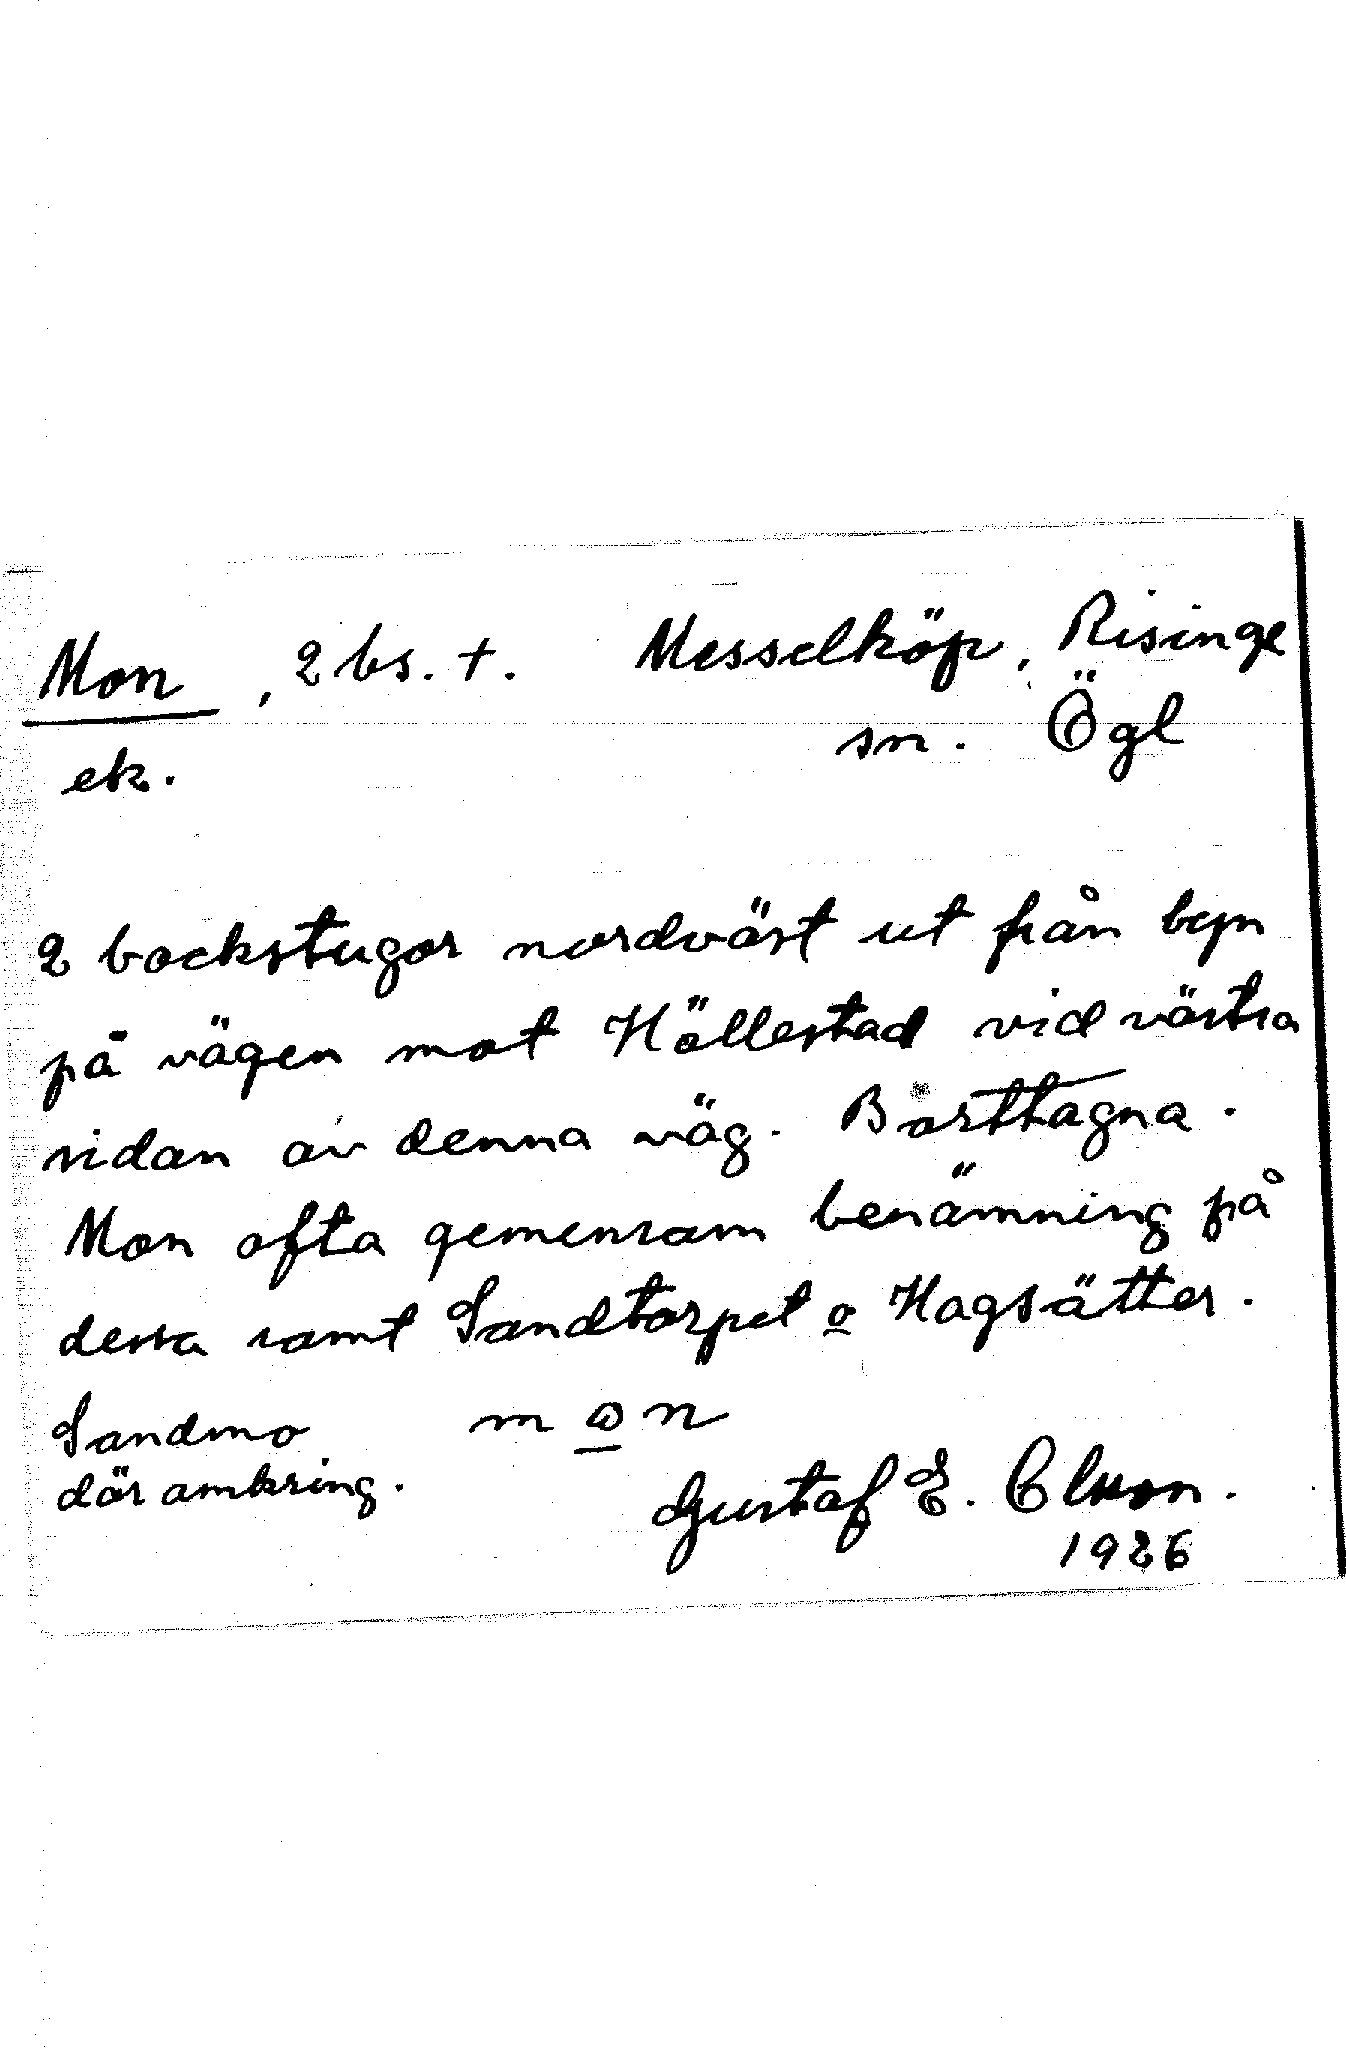 Mon, 2 bs. +. Messelköp, Risinge
ek. sn. Ögl
2 backstugor nordväst ut från byn
på vägen mot Hällestad vid västra
sidan av denna väg. Borttagna.
Mon ofta gemensam benämning på
dessa samt Sandtorpet o Hagsätter.
Sandmo mon
där omkring.
Gustaf E. Olsson.
1926